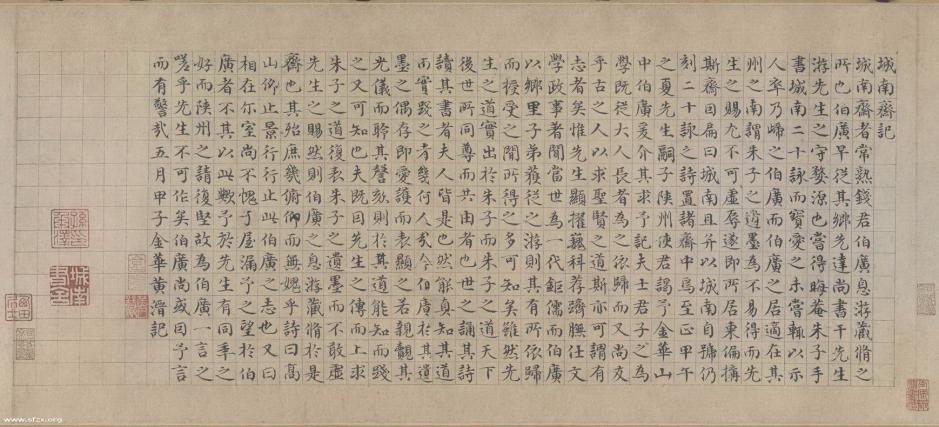 城南齋記
城南齋者常熟錢君伯廣息游藏脩之
所也伯廣早從其鄉先達尚書干先生
游先生之守婺源也嘗得晦菴朱子手
書城南二十詠而寳愛之未嘗輙以示
人卒乃歸之伯廣而伯廣之居適在其
州之南謂朱子之遺墨為不易得而先
生之賜尤不可虛辱遂即所居東偏搆
斯齋因扁曰城南且并以城南自號仍
刻二十詠之詩置諸齋中焉至正甲午
之夏先生嗣子陝州使君謁予金華山
中伯廣爰介其求予記夫士君子之為
學既從大人長者為之依歸而又尚友
乎古之人以求聖賢之道斯亦可謂有
志者矣惟先生顯擢巍科荐躋膴仕文
學政事著聞當世為一代鉅儒而伯廣
以鄉里子弟獲從之游則其有所依歸
而授受之間所得之多可知矣雖然先
生之道實出於朱子而朱子之道天下
後世所同尊而共由者也世之誦其詩
讀其書者夫人皆是也然能真知其道
而實踐之者幾何人哉今伯廣於其遺
墨之偶存即愛護而表顯之若親覿其
光儀而聆其謦欬則於其道能知而踐
之又可知也夫既因先生之傳而上求
朱子之道復表朱子之遺墨而不敢虛
先生之賜然則伯廣之息游藏脩於是
齋也其殆庶幾俯仰而無媿乎詩曰高
山仰止景行行止此伯廣之志也又曰
相在尔室尚不愧于屋漏予之望於伯
廣者不其以此歟予於先生有同年之
好而陝州之請復堅故為伯廣一言之
嗟乎先生不可作矣伯廣尚或因予言
而有警哉五月甲子金華黃溍記
www.sfzx.org